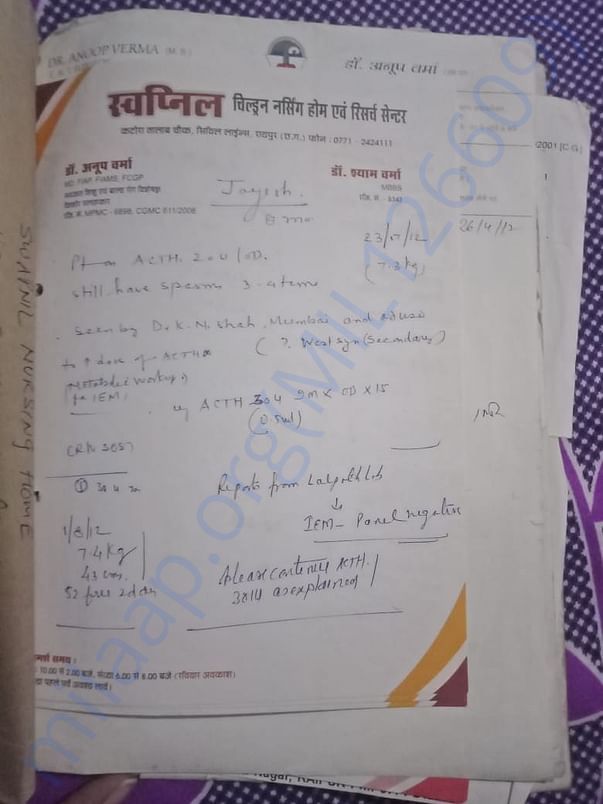 DR. ANOOP VERMA (M.D.)
डॉ. अनूप वर्मा
स्वप्निल चिल्ड्रन नर्सिंग होम एवं रिसर्च सेन्टर
कटोरा तालाब चौक, सिविल लाईन्स, रायपुर (छ.ग.) फोन : 0771 - 2424111
डॉ. अनूप वर्मा
MD, FIAP, FIAMS, FCGP
रजि. नं. MPMC - 6898, CGMC 611/2006
डॉ. श्याम वर्मा
MBBS
Jayesh
23/7/12
(7.3 kg)
26/4/12
Pt on ACTH 20 U/OD.
still have spasm 3-4 time
seen by Dr. K. N. Shah, Mumbai and advise
to ↑ dose of ACTH
(?. West syn (Secondary)
Metabolic workup
for IEM
ACTH 30 U IM x OD x 15
(0.5ml)
Reports from Lalpath lab
↓
IEM - Panel negative
1/8/12
7.4 kg
43 cm.
Please continue ACTH.
30 U as explained
10.00 से 2.00 बजे, संध्या 6.00 से 8.00 बजे (रविवार अवकाश)
SWAPNIL NURSING HOME
milaap.org(MIL1266092)